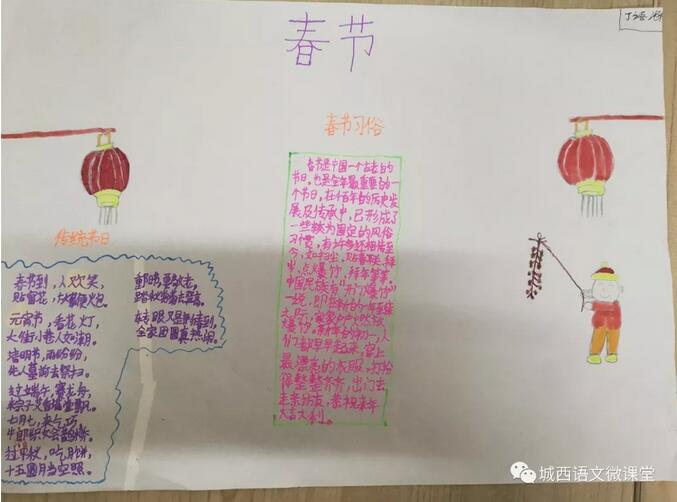 春节
春节习俗
春节是中国一个古老的
节日,也是全年最重要的一
个节日,在千百年的历史发
展及传承中,已形成了
一些较为固定的风俗
习惯,有许多还相传至
今,如扫尘,贴春联,拜
年,点爆竹,拜年等等。
中国民间有"开门爆竹"
一说,即在新的一年到来
之际,家家户户燃放
爆竹。新年的初一,人
们都早早起来,穿上
最漂亮的衣服,打扮
得整整齐齐,出门去
走亲访友,恭祝来年
大吉大利。
传统节日
春节到,人欢笑,
贴窗花,放鞭炮。
元宵节,看花灯,
大街小巷人如潮。
清明节,雨纷纷,
先人墓前去祭扫。
过端午,赛龙舟,
粽子艾香满堂飘。
七月七,来乞巧,
牛郎织女会鹊桥。
过中秋,吃月饼,
十五圆月当空照。
重阳节,要敬老,
踏秋赏菊去登高。
转眼又是新春到,
全家团圆真热闹。
城西语文微课堂